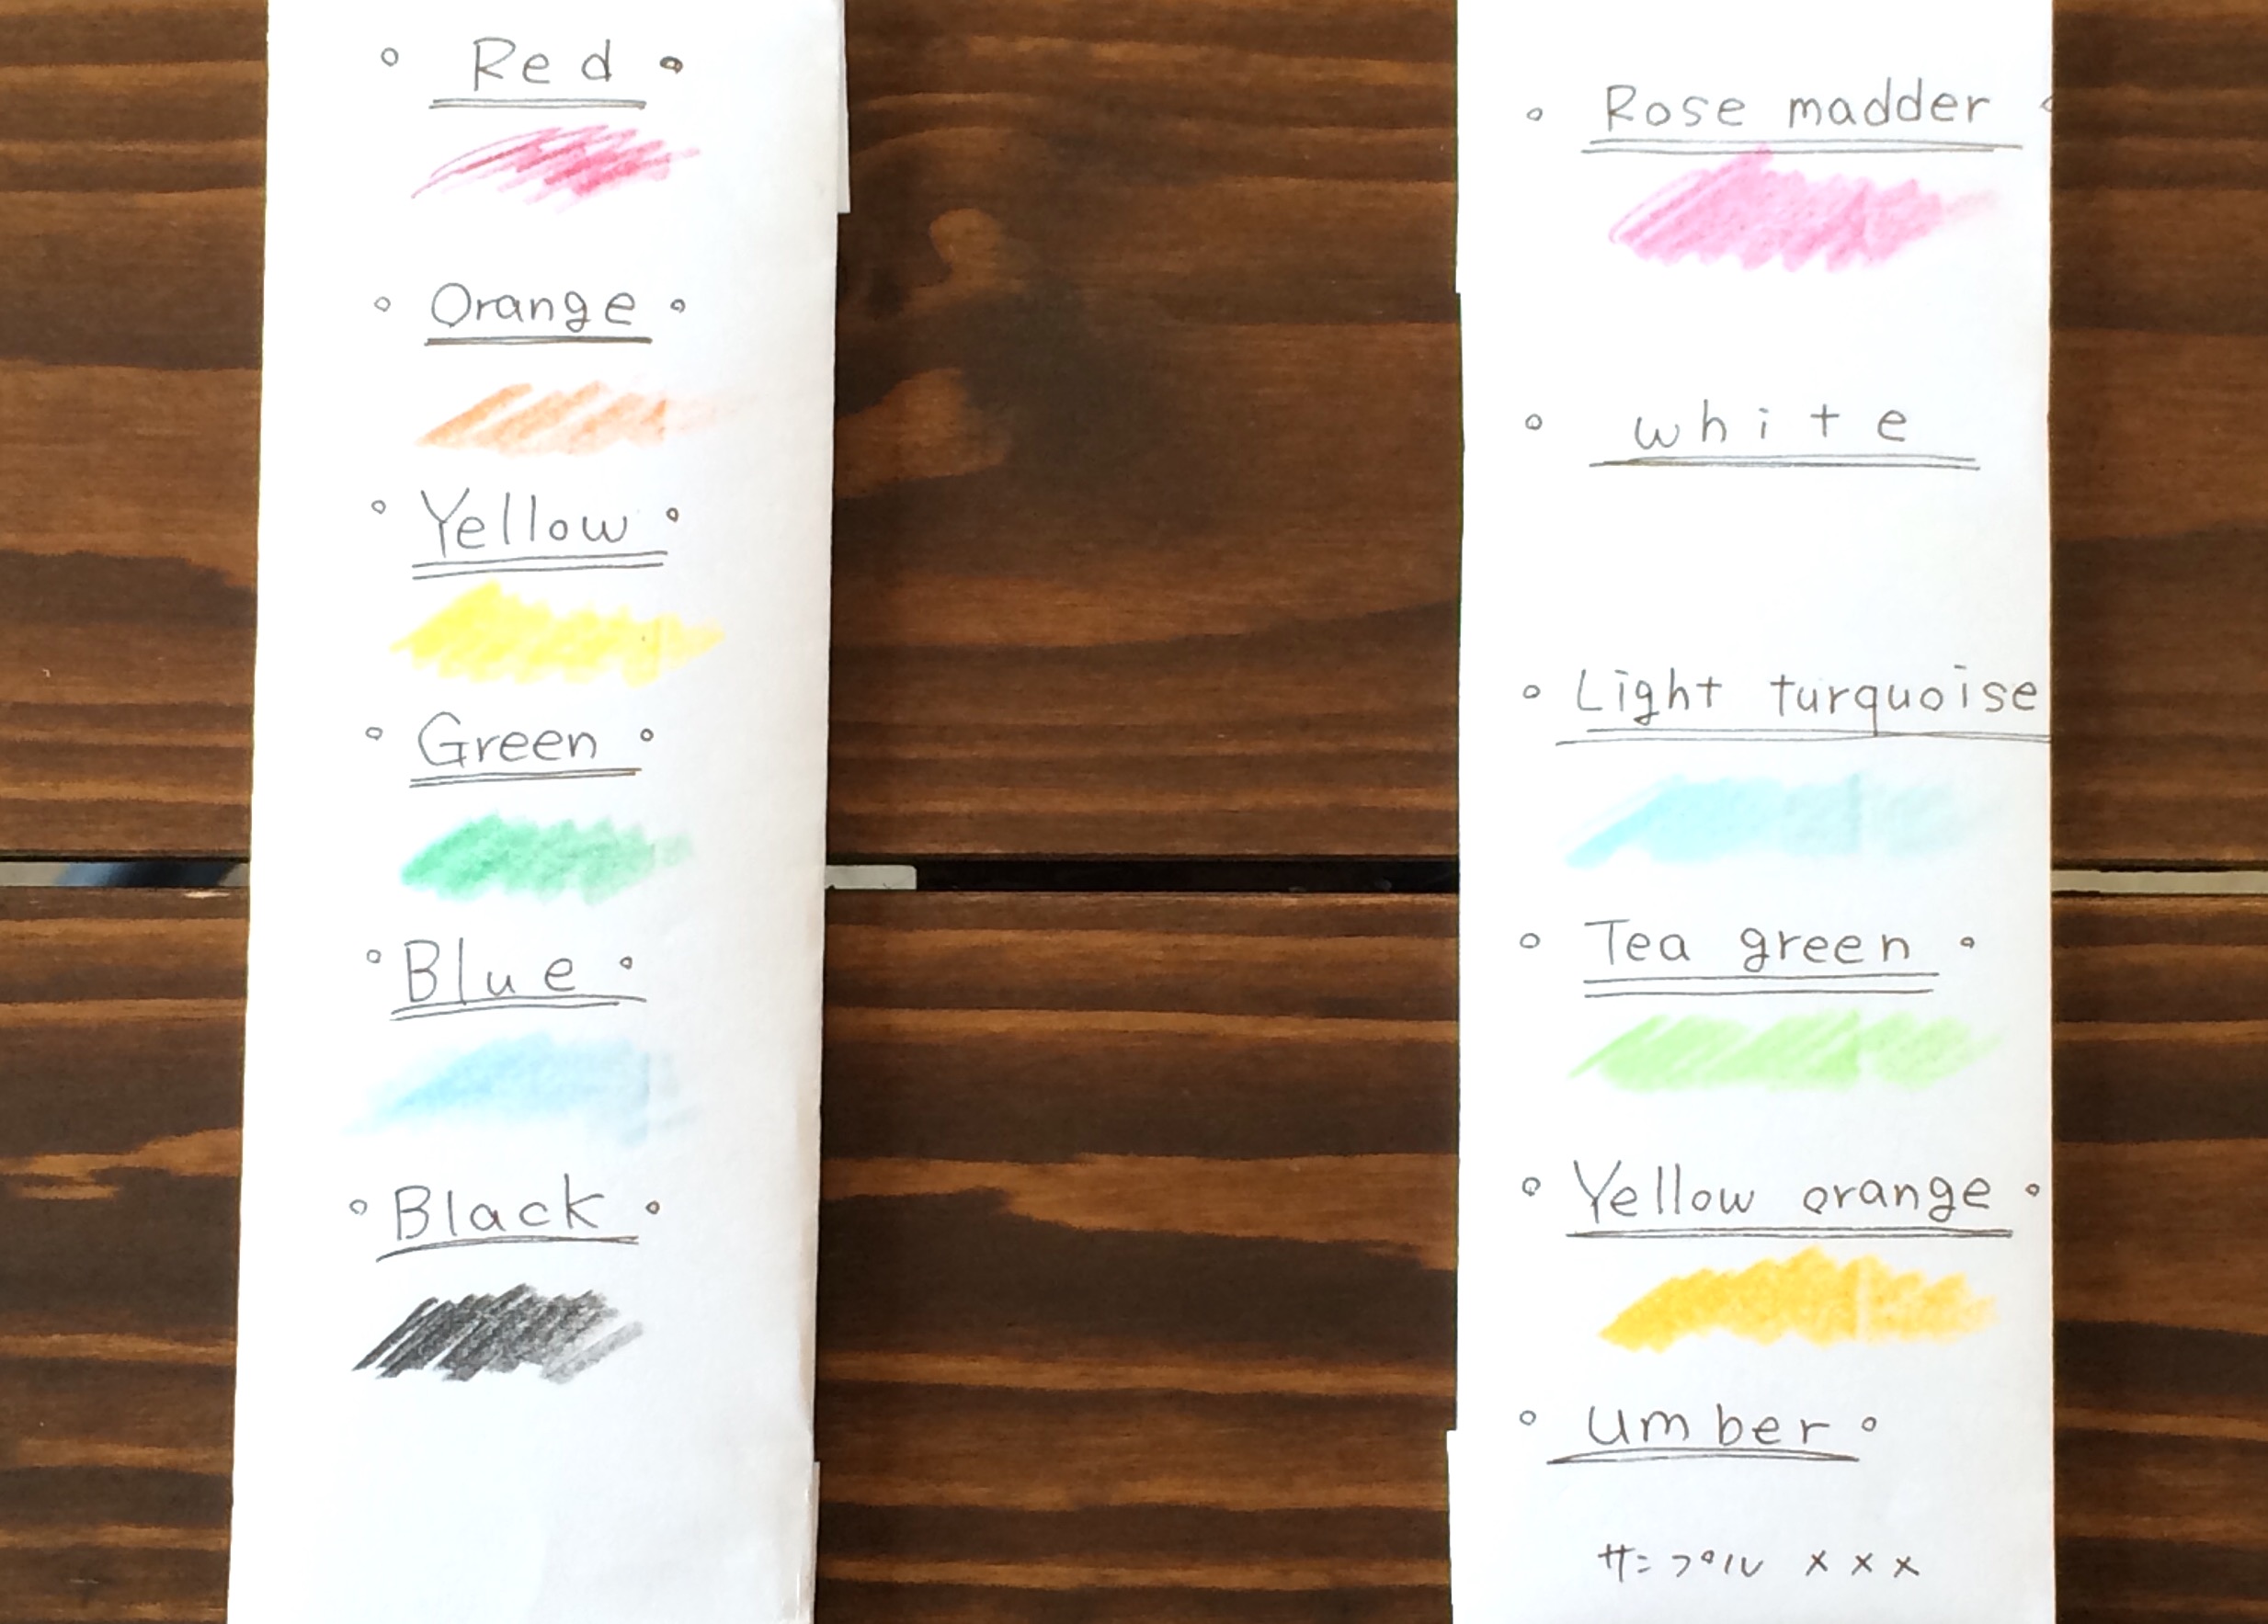 Red
Orange
Yellow
Green
Blue
Black
Rose madder
white
Light turquoise
Tea green
Yellow orange
umber
サンプル ×××